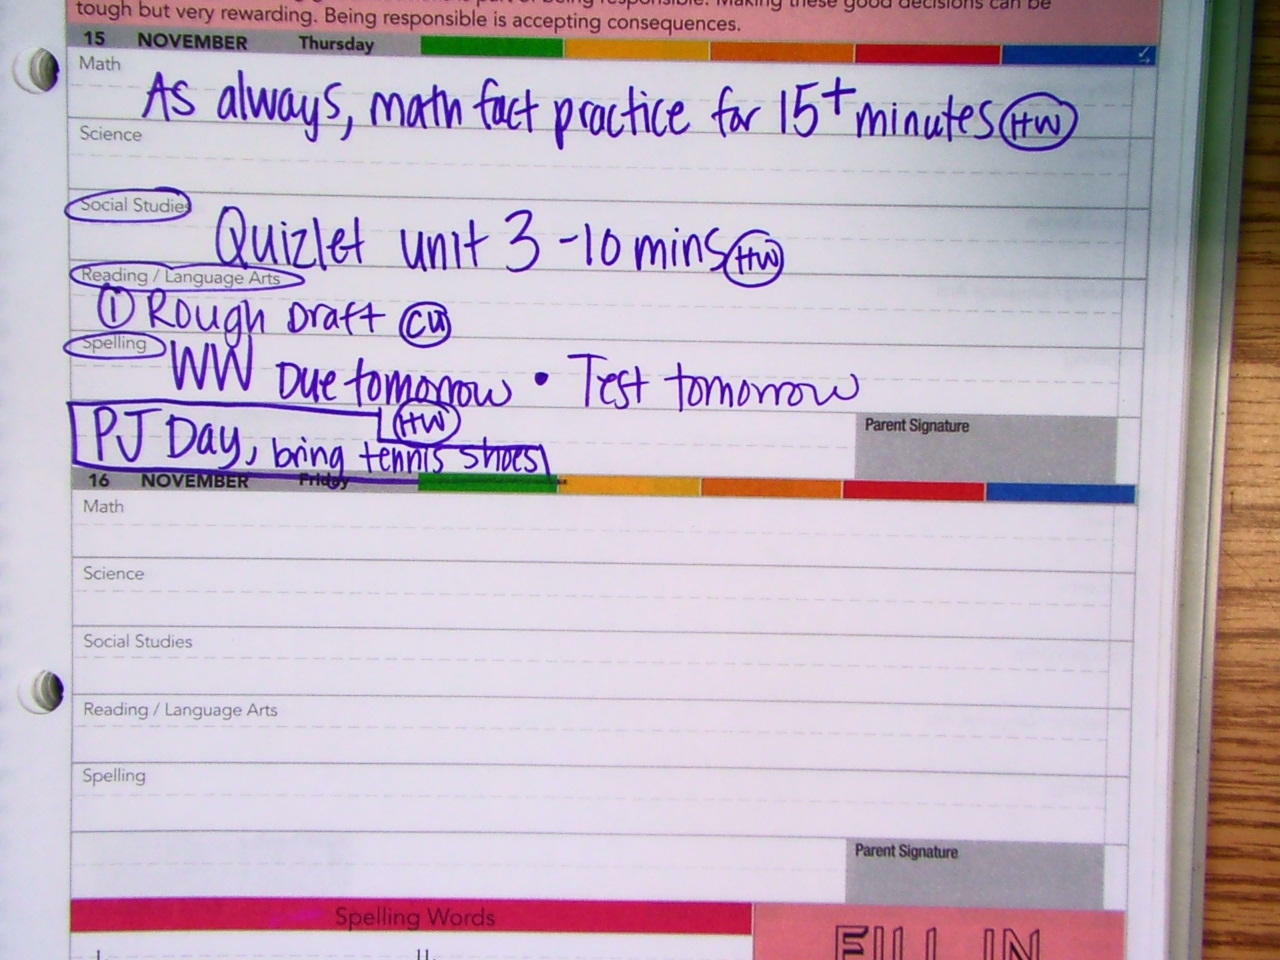 tough but very rewarding. Being responsible is accepting consequences.
15 NOVEMBER Thursday
Math
As always, math fact practice for 15+ minutes HW
Science
Social Studies
Quizlet unit 3 - 10 mins HW
Reading / Language Arts
① Rough Draft CW
Spelling
WW Due tomorrow • Test tomorrow
HW
PJ Day, bring tennis shoes
Parent Signature
16 NOVEMBER Friday
Math
Science
Social Studies
Reading / Language Arts
Spelling
Parent Signature
Spelling Words
FILL IN